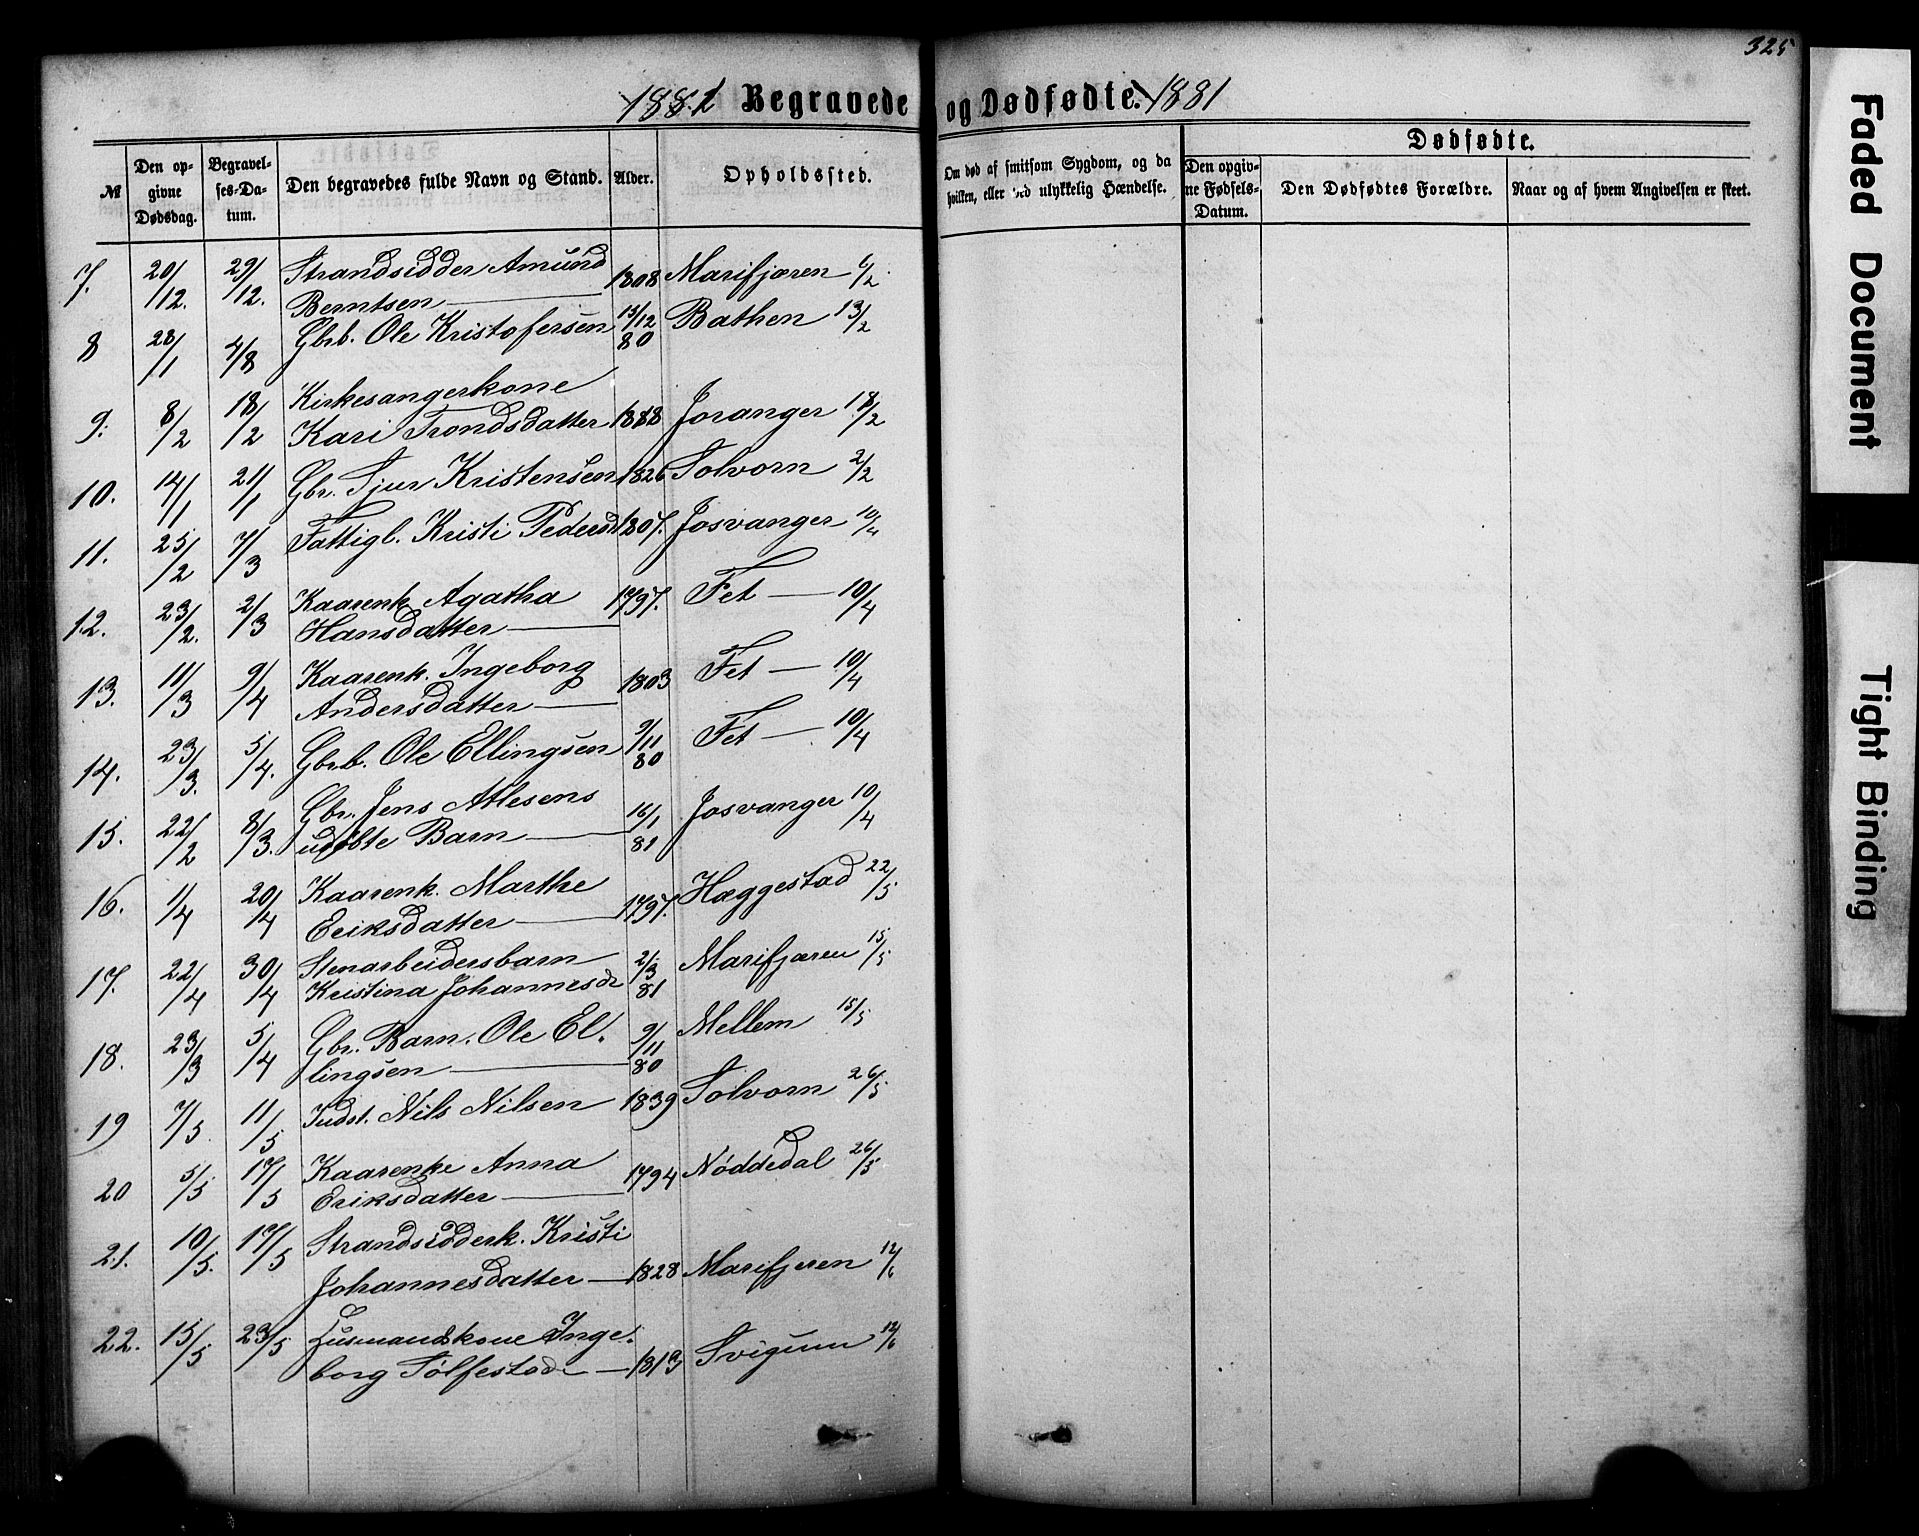 325
1881 Begravede og Dødfødte. 1881
№
Den op-
givne
Dødsdag.
Begravel-
ses-Da-
tum.
Den begravedes fulde Navn og Stand.
Alder.
Opholdssted.
Om død af smitsom Sygdom, og da
hvilken, eller ved ulykkelig Hændelse.
Dødfødte.
Den opgiv-
ne Fødsels-
Datum.
Den Dødfødtes Forældre.
Naar og af hvem Angivelsen er skeet.
7. 20/12. 29/12. Strandsidder Amund 1808 Marifjæren 6/2
Berntsen
8 28/1 4/8 Gbrb. Ole Kristofersen 13/12 80 Bathen 13/2
Kirkesangerkone
9. 8/2 18/2 Kari Trondsdatter 1888 Joranger 18/2
10. 14/1 21/1 Gbr. Sjur Kristensen 1826 Solvorn 2/2
11. 25/2 7/3 Fattigl. Kristi Pedersd 1807. Josvanger 10/4
12. 23/2. 2/3 Kaarenk Agatha 1797. Fet — 10/4
Hansdatter
13. 11/3 9/4 Kaarenk. Ingeborg 1803 Fet — 10/4
Andersdatter
14. 23/3. 5/4. Gbrb. Ole Ellingsen 9/11 80 Fet — 10/4
15. 22/2 8/3. Gbr. Jens Atlesens 16/1 81 Josvanger 10/4
udøbte Barn
16. 1/4 20/4 Kaarenk. Marthe 1797. Hæggestad 22/5
Eriksdatter
17. 22/4 30/4 Stenarbeidersbarn 2/3 81 Marifjæren 15/5
Kristina Johannesdr
18. 23/3 5/4 Gbr. Barn. Ole El. 9/11 80 Mellem 15/5
lingsen
19 7/5. 11/5 Indst. Nils Nilsen 1839 Solvorn 26/5
20 5/5 17/5 Kaarenke Anna 1794 Nøddedal 26/5
Eriksdatter
21. 10/5. 17/5 Strandsidderk. Kristi
Johannesdatter — 1828 Marifjeren 12/6
22. 15/5 23/5 Husmandskone Inge.
borg Sølfestodr — 1813 Svigum 12/6
Faded Document
Tight Binding